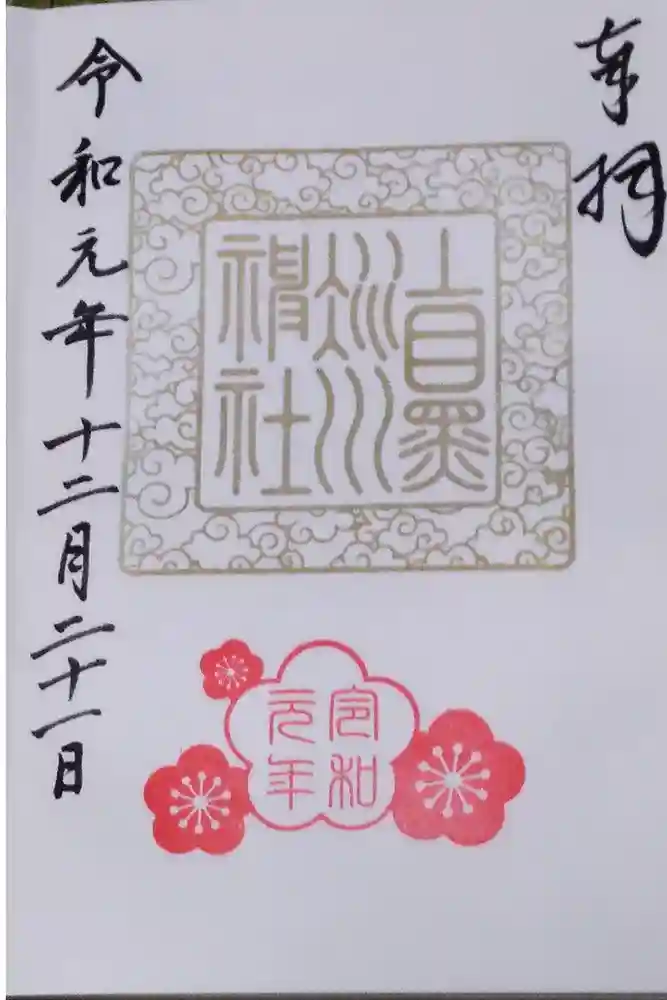 奉拝
上目黒
氷川
神社
令和
元年
令和元年十二月二十一日